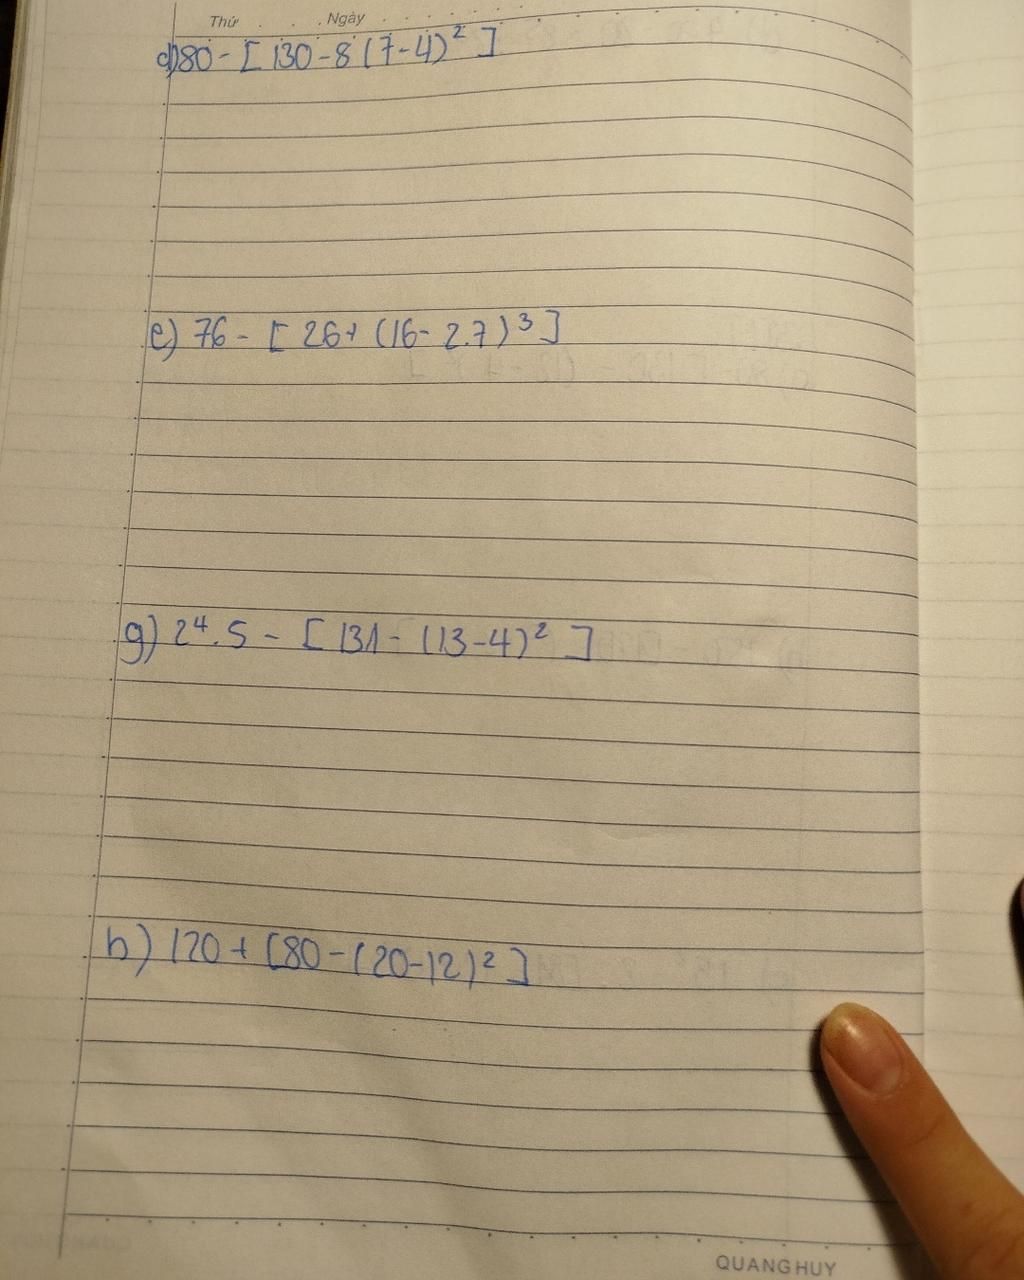 Thứ Ngày
d) 80 - [ 130 - 8 (7-4)² ]
e) 76 - [ 26 + (16 - 2.7)³ ]
g) 2⁴.5 - [ 131 - (13-4)² ]
h) 120 + [80 - (20-12)² ]
QUANG HUY